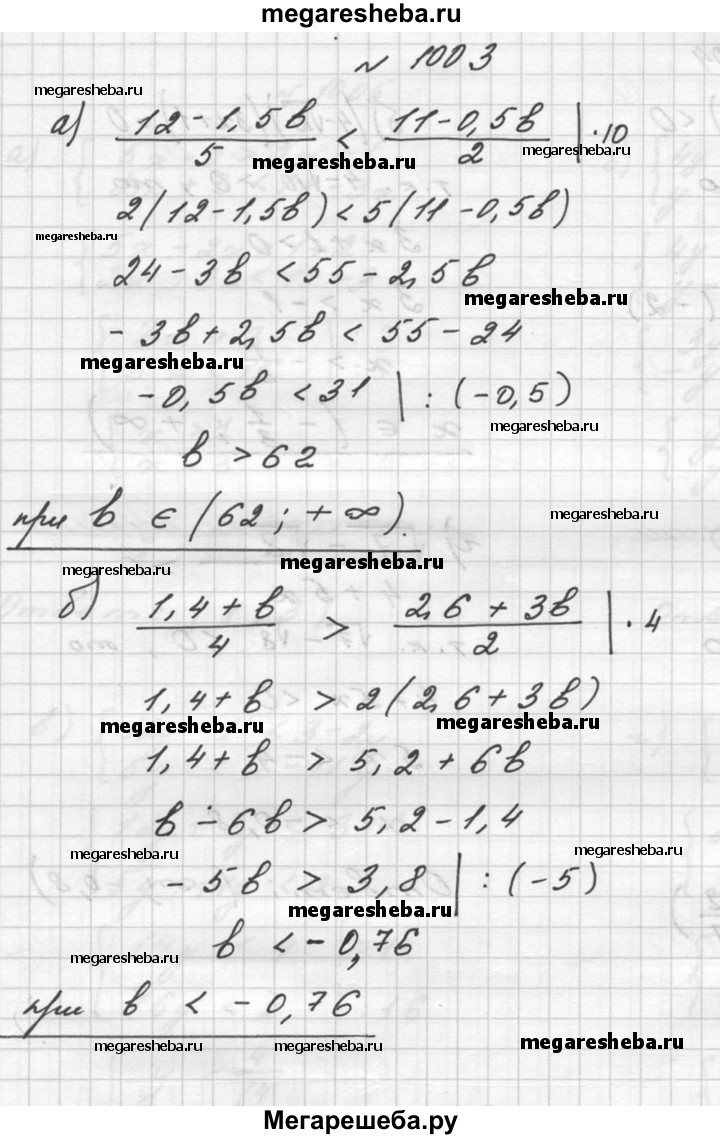 megaresheba.ru
№ 1003
megaresheba.ru
а) (12-1,5в)/5 < (11-0,5в)/2 | ·10
megaresheba.ru megaresheba.ru
2(12-1,5в) < 5(11-0,5в)
megaresheba.ru
24-3в < 55-2,5в
megaresheba.ru
-3в+2,5в < 55-24
megaresheba.ru
-0,5в < 31 | : (-0,5)
megaresheba.ru
в > 62
при в ∈ (62; +∞).
megaresheba.ru
megaresheba.ru
megaresheba.ru
б) (1,4+в)/4 > (2,6+3в)/2 | · 4
1,4+в > 2(2,6+3в)
megaresheba.ru megaresheba.ru
1,4+в > 5,2+6в
в-6в > 5,2-1,4
megaresheba.ru megaresheba.ru
-5в > 3,8 | : (-5)
megaresheba.ru
в < -0,76
megaresheba.ru
при в < -0,76
megaresheba.ru megaresheba.ru megaresheba.ru
Мегарешеба.ру